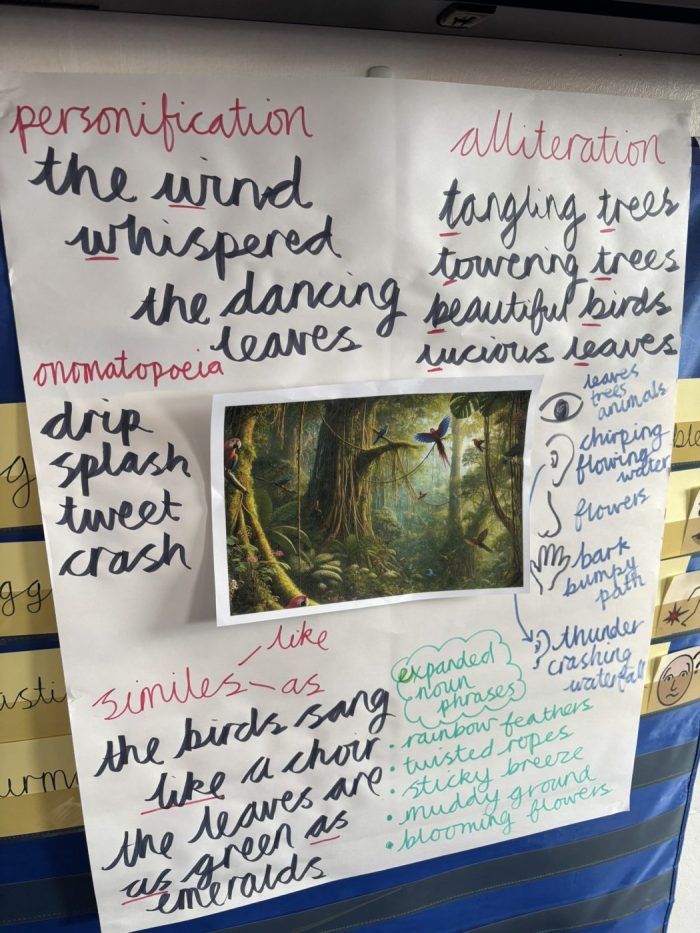 personification
the wind
whispered
the dancing
leaves
alliteration
tangling trees
towering trees
beautiful birds
lucious leaves
onomatopoeia
drip
splash
tweet
crash
leaves
trees
animals
chirping
flowing
water
flowers
bark
bumpy
path
thunder
crashing
waterfall
like
similes
as
the birds sang
like a choir
the leaves are
as green as
emeralds
expanded
noun
phrases
• rainbow feathers
• twisted ropes
• sticky breeze
• muddy ground
• blooming flowers